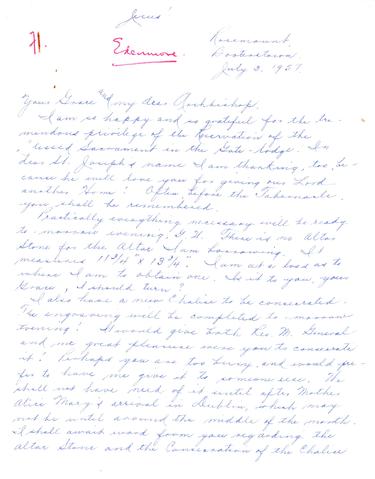 Jesus!
Edermine.
Rosemount,
Booterstown
July 2, 1957
Your Grace and my dear Archbishop,
I am so happy and so grateful for the tre-
mendous privilege of the Reservation of the
Blessed Sacrament in the Gate-lodge. In
dear St. Joseph's name I am thanking, too, be-
cause he will love you for giving our Lord
another Home! Often before the Tabernacle
you shall be remembered.
Practically everything necessary will be ready
to-morrow evening, G.W. There is no Altar
Stone for the Altar I am borrowing. It
measures 11 3/4" x 13 3/4". I am at a loss as to
where I am to obtain one. Is it to you, your
Grace, I should turn?
I also have a new Chalice to be consecrated.
The engraving will be completed to-morrow
evening! It would give both Rev. M. General
and me great pleasure were you to consecrate
it! Perhaps you are too busy, and would pre-
fer to have me give it to someone else. We
shall not have need of it until after Mother
Alice Mary's arrival in Dublin, which may
not be until around the middle of the month.
I shall await word from you regarding the
Altar Stone and the Consecration of the Chalice